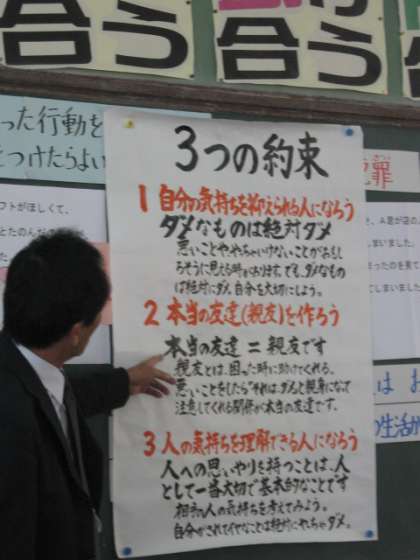 合う
合う
った行動を
とつけたらよい
犯罪
フトがほしくて、
3つの約束
1 自分の気持ちを抑えられる人になろう
ダメなものは絶対ダメ
悪いことややっちゃいけないことがおもし
ろそうに見える時があります。でも、ダメなもの
は絶対にダメ。自分を大切にしよう。
2 本当の友達(親友)を作ろう
本当の友達=親友です
親友とは、困った時に助けてくれる。
悪いことをしたら"それはダメ"と親身になって
注意してくれる関係が本当の友達です。
3 人の気持ちを理解できる人になろう
人への思いやりを持つことは、人
として一番大切で基本的なことです
相手の人の気持ちを考えてみよう。
自分がされてイヤなことは絶対にやっちゃダメ。
しまいました。
ったのを見て
てしまいました
は お
の生活が